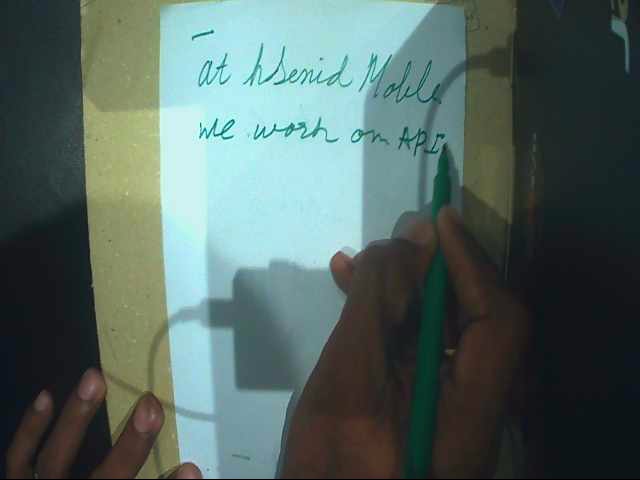 at hSenid Mobile
we work on API